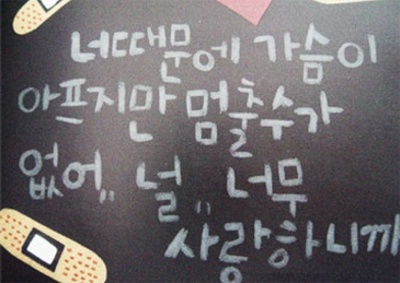 너때문에 가슴이
아프지만 멈출수가
없어,, 널,, 너무
사랑하니까